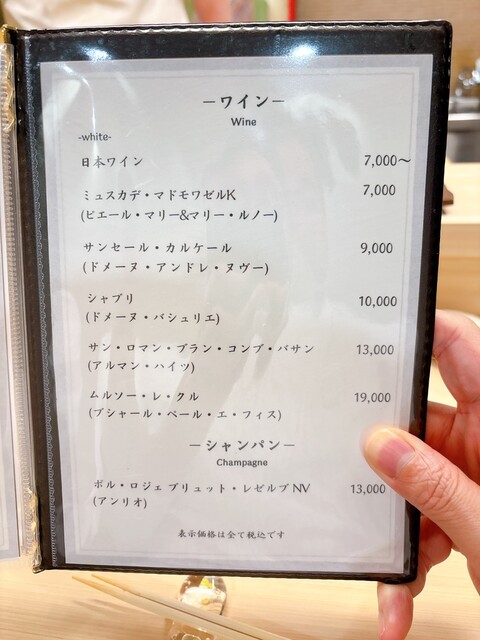 ーワインー
Wine
-white-
日本ワイン 7,000〜
ミュスカデ・マドモワゼルK 7,000
(ピエール・マリー&マリー・ルノー)
サンセール・カルケール 9,000
(ドメーヌ・アンドレ・ヌヴー)
シャブリ 10,000
(ドメーヌ・バシュリエ)
サン・ロマン・ブラン・コンブ・バザン 13,000
(アルマン・ハイツ)
ムルソー・レ・クル 19,000
(ブシャール・ペール・エ・フィス)
ーシャンパンー
Champagne
ポル・ロジェ ブリュット・レゼルブ NV 13,000
(アンリオ)
表示価格は全て税込です